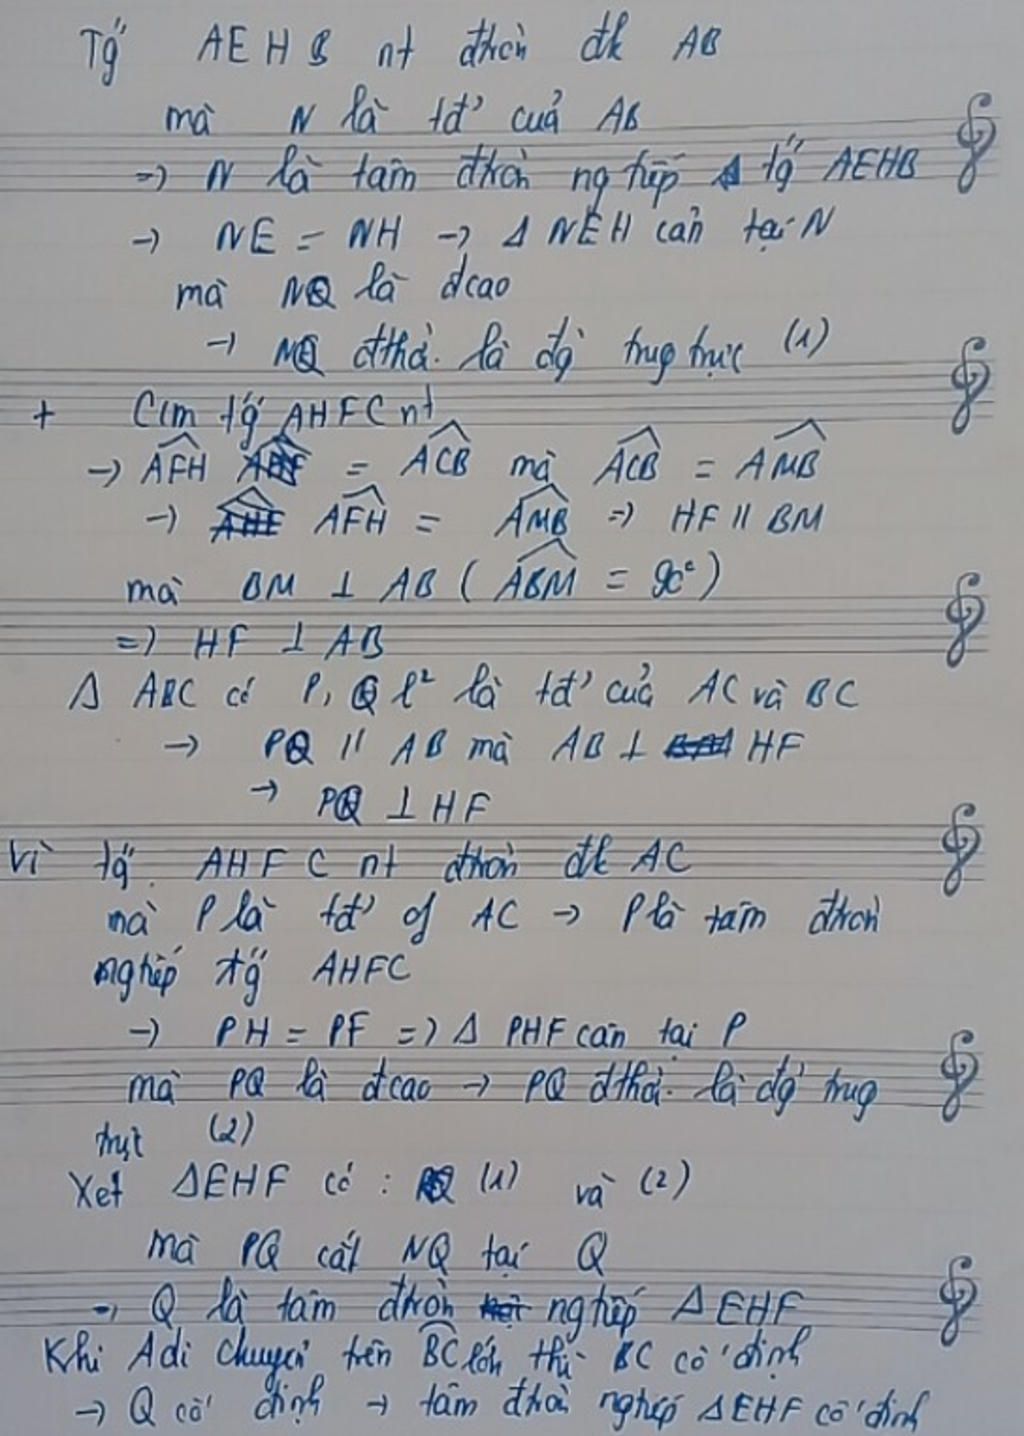 Tg AEHB nt đtròn đk AB
mà N là tđ' của AB
=) N là tâm đtròn ng tiếp tg AEHB
-> NE = NH -> Δ NEH cân tại N
mà NQ là đcao
-> NQ đthả. là đg trug trực (1)
+ Cm tg AHFC nt
-> AFH = ACB mà ACB = AMB
-> AFH = AMB => HF // BM
mà BM ⊥ AB ( ABM = 90° )
=) HF ⊥ AB
Δ ABC có P, Q l² là tđ' của AC và BC
-> PQ // AB mà AB ⊥ HF
-> PQ ⊥ HF
Vì tg AHFC nt đtròn đk AC
mà P là tđ' of AC -> P là tâm đtròn
nghiếp tg AHFC
-> PH = PF =) Δ PHF cân tại P
mà PQ là đcao -> PQ đthả. là đg trug
trực (2)
Xét ΔEHF có : (1) và (2)
mà PQ cắt NQ tại Q
-> Q là tâm đtròn nghiếp ΔEHF
Khi A di chuyển trên BC lớn thì BC cố định
-> Q cố định -> tâm đtròn nghiếp ΔEHF cố định